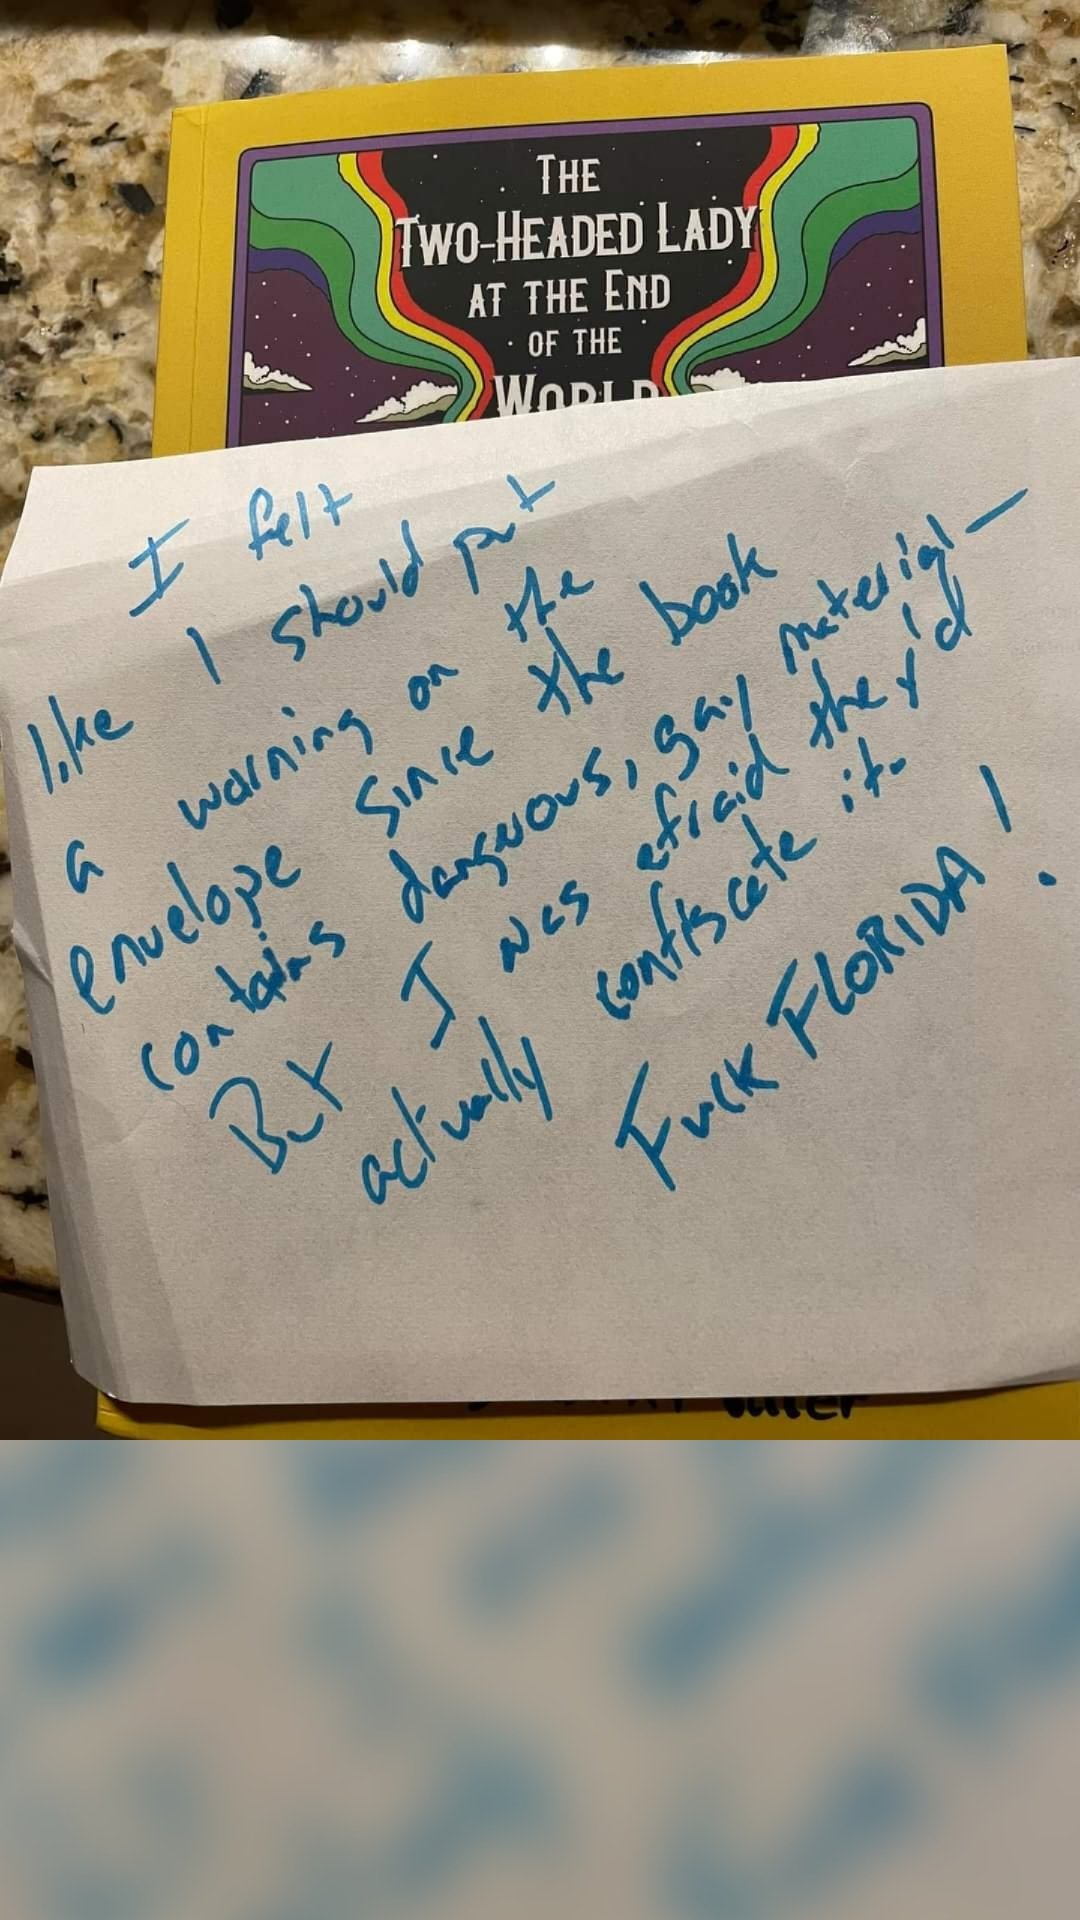 THE
TWO-HEADED LADY
AT THE END
OF THE
WORLD
I felt
like I should put
a warning on the
envelope since the book
contains dangerous, gay material—
But I was afraid they'd
actually confiscate it.
FUCK FLORIDA!